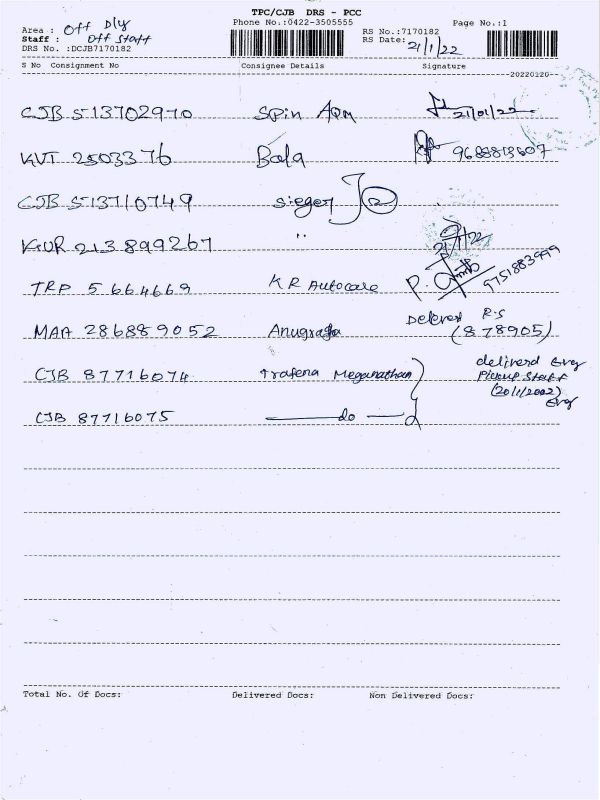 TPC/CJB DRS - PCC
Area : Off Dly
Phone No.:0422-3505555
Page No.:1
Staff : Off Staff
RS No.:7170182
DRS No. :DCJB7170182
RS Date: 21/1/22
S No Consignment No Consignee Details Signature
20220120
CJB 513702970 Spin Aqm 21/01/22
KVT 2503376 Bala
CJB 513710749 Sieger
KUR 213899267 "
21/1/22
TRP 5664669 KR Autocare P. 9751883999
MAA 286889052 Anugraha Delevered R.S
(878905)
CJB 87716074 Trafena Meganathan deliverd
Pickup Staff
(20/1/2002)
CJB 87716075 do
Total No. Of Docs: Delivered Docs: Non Delivered Docs: